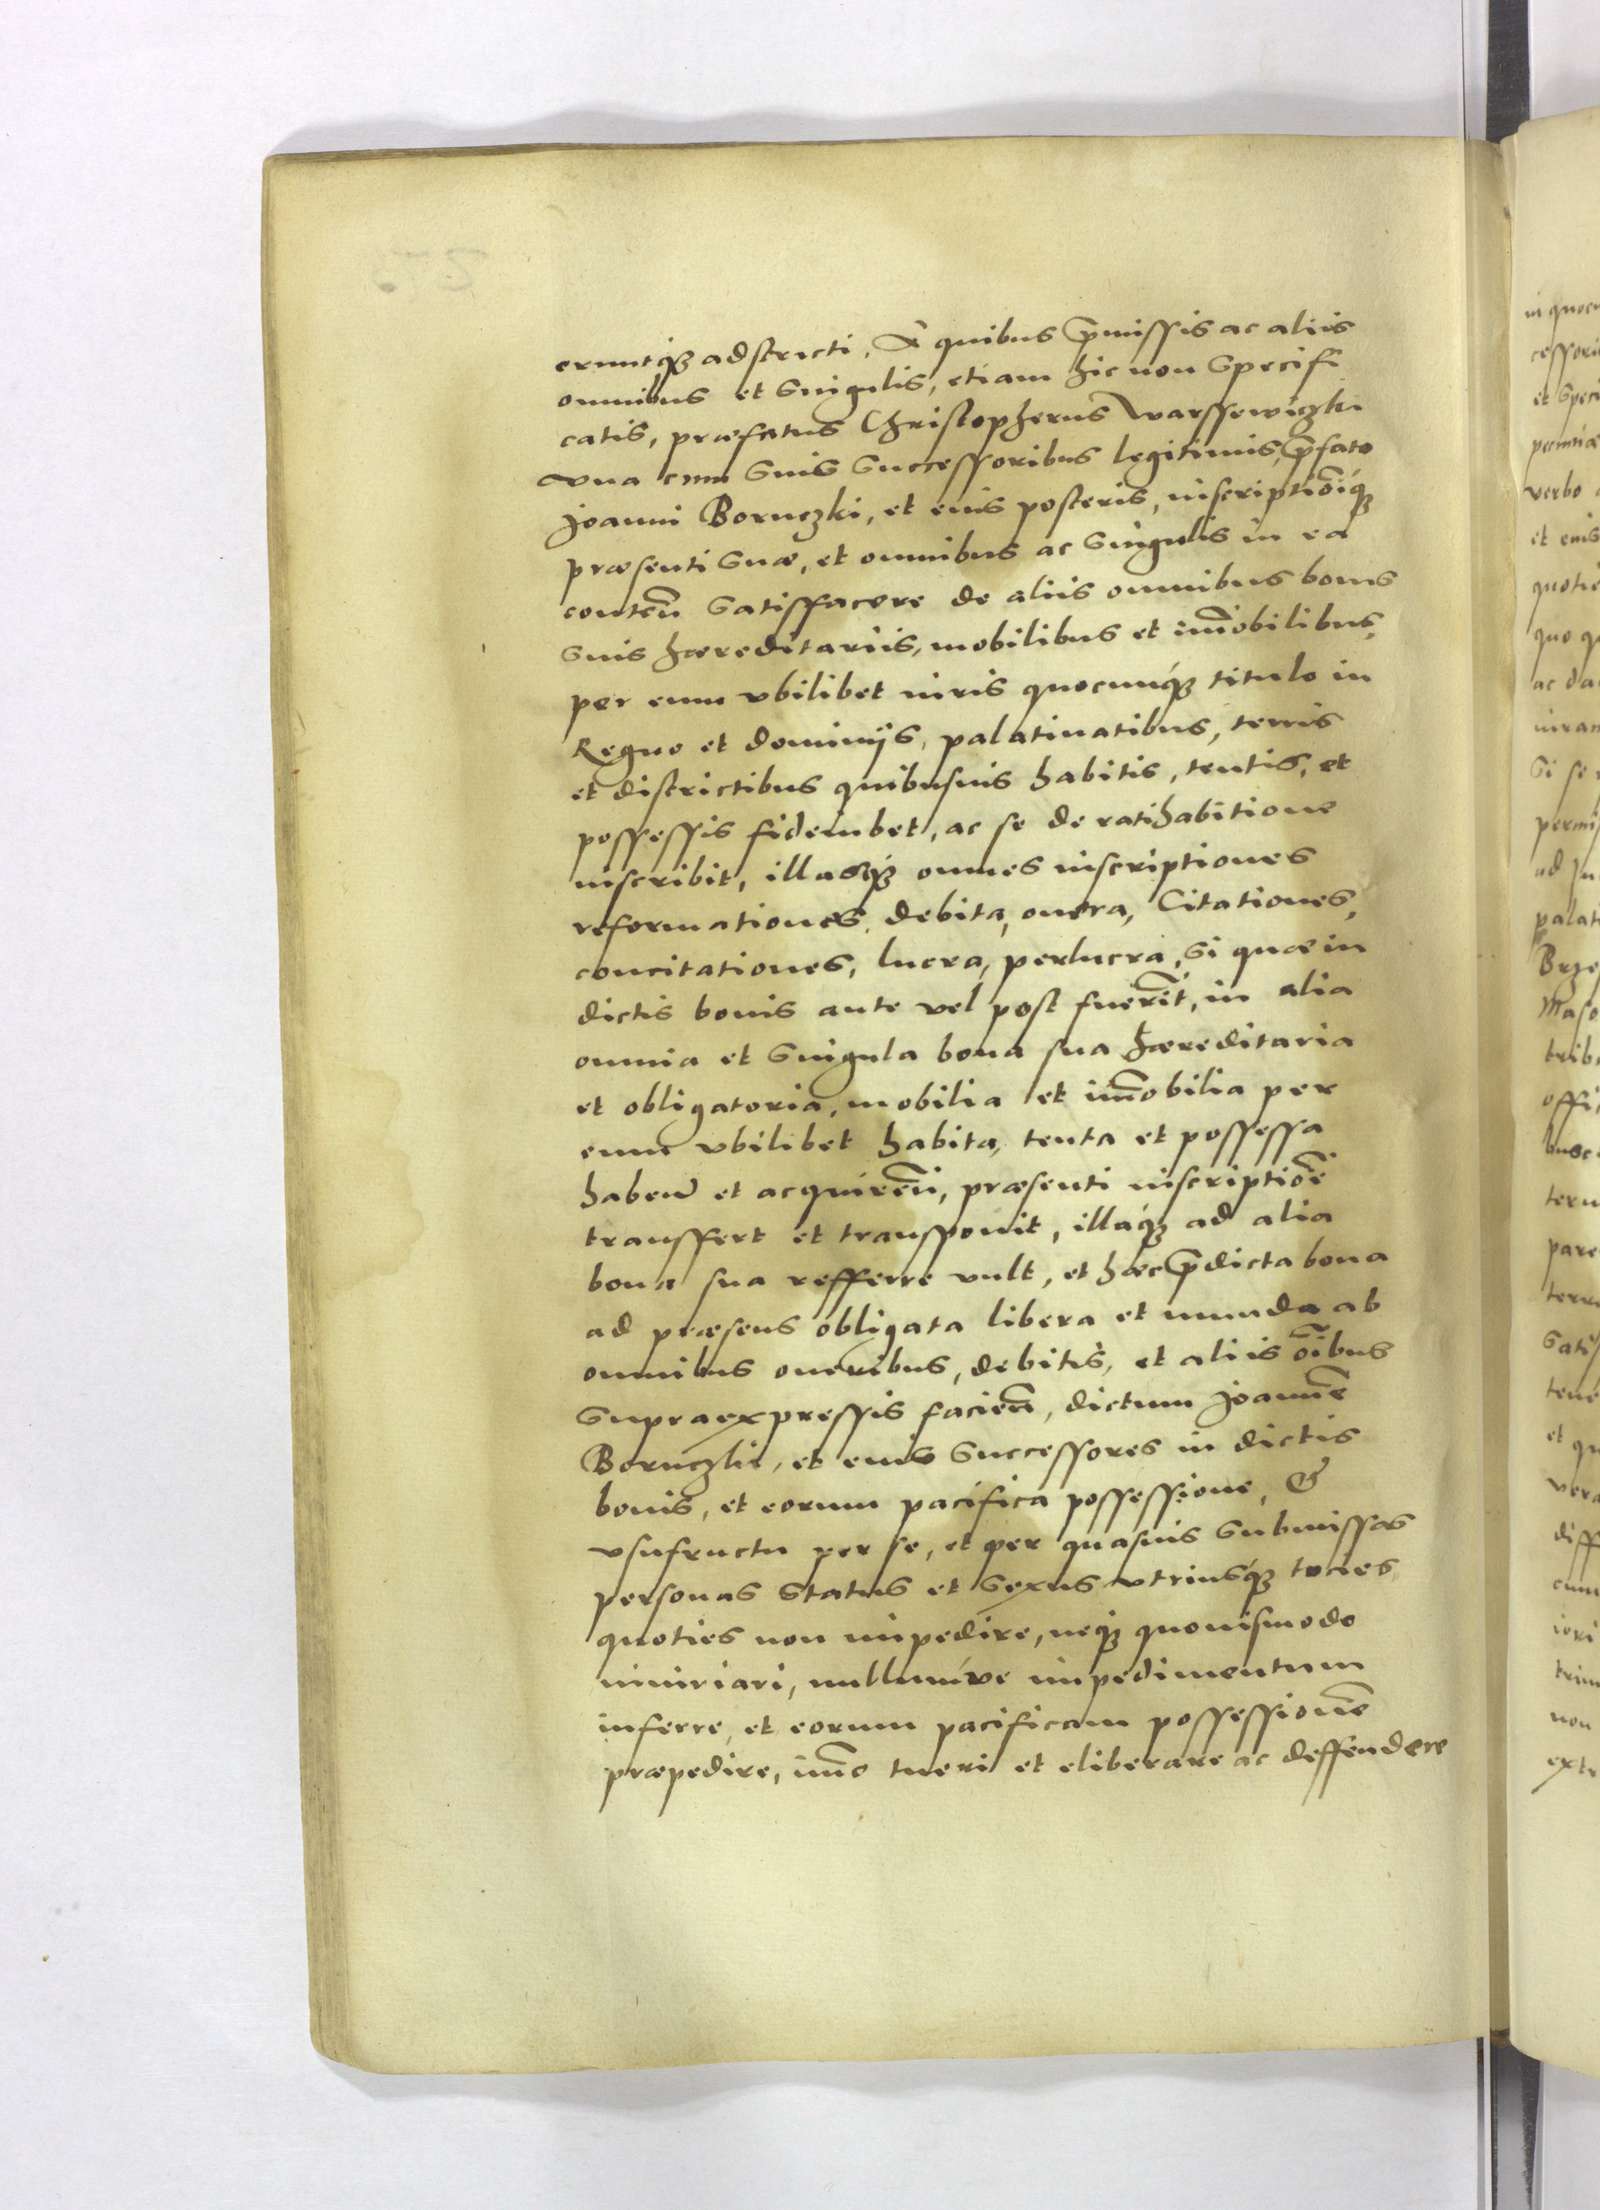 eruntq₃ adstricti, A quibus p̄missis ac aliis
omnibus et singulis, etiam hic non specifi
catis, præfatus Christopherus Warssewiczki
vna cum suis successoribus legitimis, p̄fato
Joanni Boruczki, et eius posteris, inscriptiōiq₃
præsenti suæ, et omnibus ac singulis in ea
conteñ satisffacere de aliis omnibus bonis
suis hæreditariis, mobilibus et im̄obilibus,
per eum vbilibet iuris quocunq₃ titulo in
Regno et dominijs, palatinatibus, terris
et districtibus quibusuis habitis, tentis, et
possessis fideiubet, ac se de ratihabitione
inscribit, illasq₃ omnes inscriptiones
reformationes, debita, onera, Citationes,
concitationes, lucra, perlucra, si quæ in
dictis bonis ante vel post fuerīt, in alia
omnia et singula bona sua hæreditaria
et obligatoria, mobilia et im̄obilia per
eum vbilibet habita, tenta et possessa
habeñ et acquireñ, præsenti inscriptiōe
transffert et transponit, illaq₃ ad alia
bona sua refferre vult, et hæc p̄dicta bona
ad præsens obligata libera et munda ab
omnibus oneribus, debitis, et aliis oībus
supraexpressis facieñ, dictum Joannē
Boruczki, et eius successores in dictis
bonis, et eorum pacifica possessione, &
vsufructu per se, et per quasuis submissas
personas status et sexus vtriusq₃ toties,
quoties non impedire, neq₃ quouismodo
iniuriari, nullumve impedimentum
inferre, et eorum pacificam possessionē
præpedire, im̄o tueri et eliberare ac deffendere